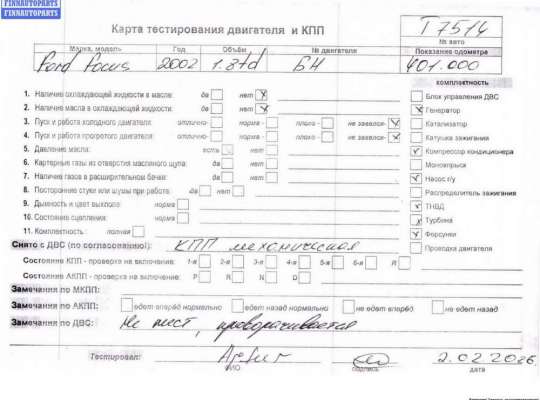 FINNAUTOPARTS
FINNAUTOPARTS
Карта тестирования двигателя и КПП
T7514
№ авто
Марка, модель Год Объём № двигателя Показание одометра
Ford Focus 2002 1.8td БН 401.000
комплектность
1. Наличие охлаждающей жидкости в масле: да нет x
2. Наличие масла в охлаждающей жидкости: да нет x
3. Пуск и работа холодного двигателя: отлично- норма - плохо - не завелся- x
4. Пуск и работа прогретого двигателя: отлично- норма - плохо - не завелся-
5. Давление масла: есть нет
6. Картерные газы из отверстия масляного щупа: да нет
7. Наличие газов в расширительном бачке: да нет
8. Посторонние стуки или шумы при работе: да нет
9. Дымность и цвет выхлопа: норма
10. Состояние сцепления: норма
11. Комплектность: полная
Блок управления ДВС
x Генератор
Катализатор
Катушка зажигания
x Компрессор кондиционера
Моновпрыск
x Насос г/у
Распределитель зажигания
x ТНВД
x Турбина
x Форсунки
Проводка двигателя
Снято с ДВС (по согласованию): КПП механическая
Состояние КПП - проверка на включение: 1-я 2-я 3-я 4-я 5-я 6-я R
Состояние АКПП - проверка на включение: P R N D
Замечания по МКПП:
Замечания по АКПП: едет вперёд нормально едет назад нормально не едет вперёд не едет назад
Замечания по ДВС: Не пуст, проворачивается
Тестировал: Artur 2.02.2026
ФИО подпись дата